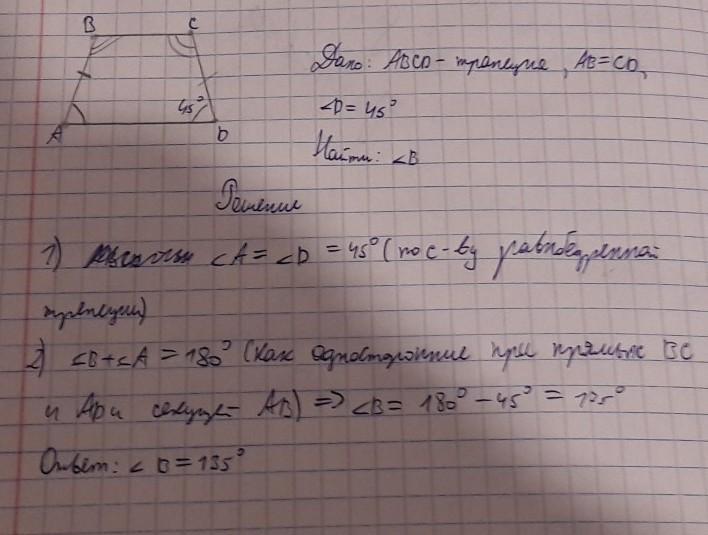 B C
45°
A D
Дано: ABCD - трапеция, AB=CD,
∠D = 45°
Найти: ∠B
Решение
1) ∠A = ∠D = 45° (по с-ву равнобедренной
трапеции)
2) ∠B+∠A = 180° (как односторонние при прямых BC
и AD и секущей AB) => ∠B = 180° - 45° = 135°
Ответ: ∠B = 135°